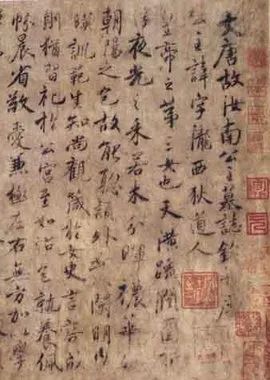 大唐故汝南公主墓誌銘并序
公主諱字隴西狄道人
皇帝之第三女也天潢疏潤圓折
浮夜光之采若木分暉穠華
朝陽之色故能聰穎外發閑明內
暎訓範生知尚觀箴於女史言容成
則猶習礼於公宮至如怡色就養佩
帉晨省敬愛兼極左右無方加以學